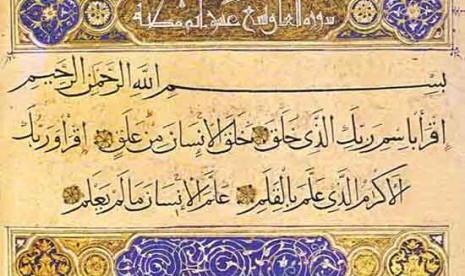 سورة العلق تسع عشر اية مكية
بسم الله الرحمن الرحيم
اقرأ باسم ربك الذي خلق خلق الإنسان من علق اقرأ وربك
الأكرم الذي علم بالقلم علم الإنسان ما لم يعلم